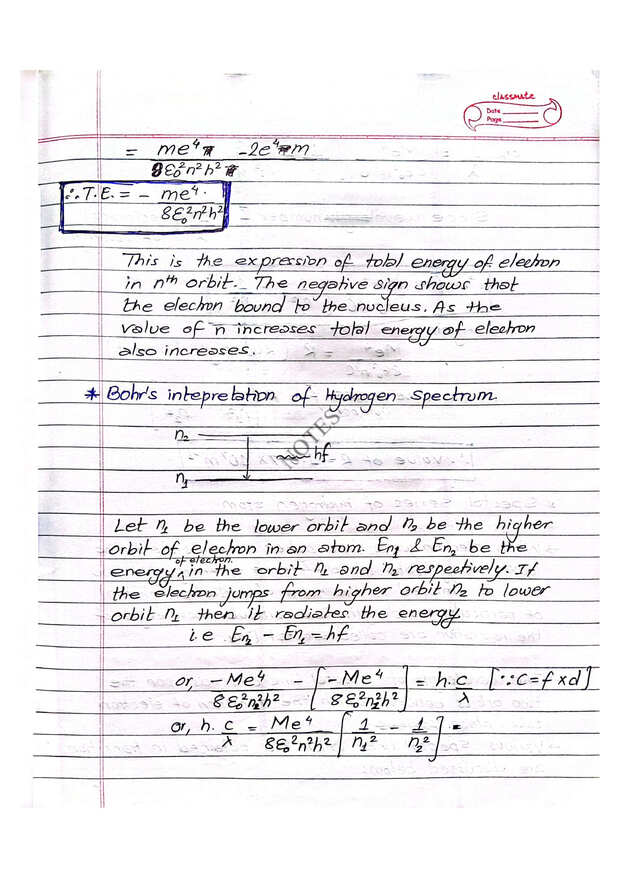 classmate
Date
Page
= me⁴π - 2e⁴πm
8ε₀²n²h² π
∴ T.E. = - me⁴
8ε₀²n²h²
This is the expression of total energy of electron
in nth orbit. The negative sign shows that
the electron bound to the nucleus. As the
value of n increases total energy of electron
also increases.
* Bohr's intepretation of Hydrogen spectrum
n₂
hf
NOTES
n₁
Let n₁ be the lower orbit and n₂ be the higher
orbit of electron in an atom. En₁ & En₂ be the
energy of electron in the orbit n₁ and n₂ respectively. If
the electron jumps from higher orbit n₂ to lower
orbit n₁ then it radiates the energy
i.e En₂ - En₁ = hf
or, -Me⁴/8ε₀²n₂²h² - [-Me⁴/8ε₀²n₁²h²] = h.c/λ [∵ C = f x d]
or, h.c/λ = Me⁴/8ε₀²n²h² [1/n₁² - 1/n₂²] -